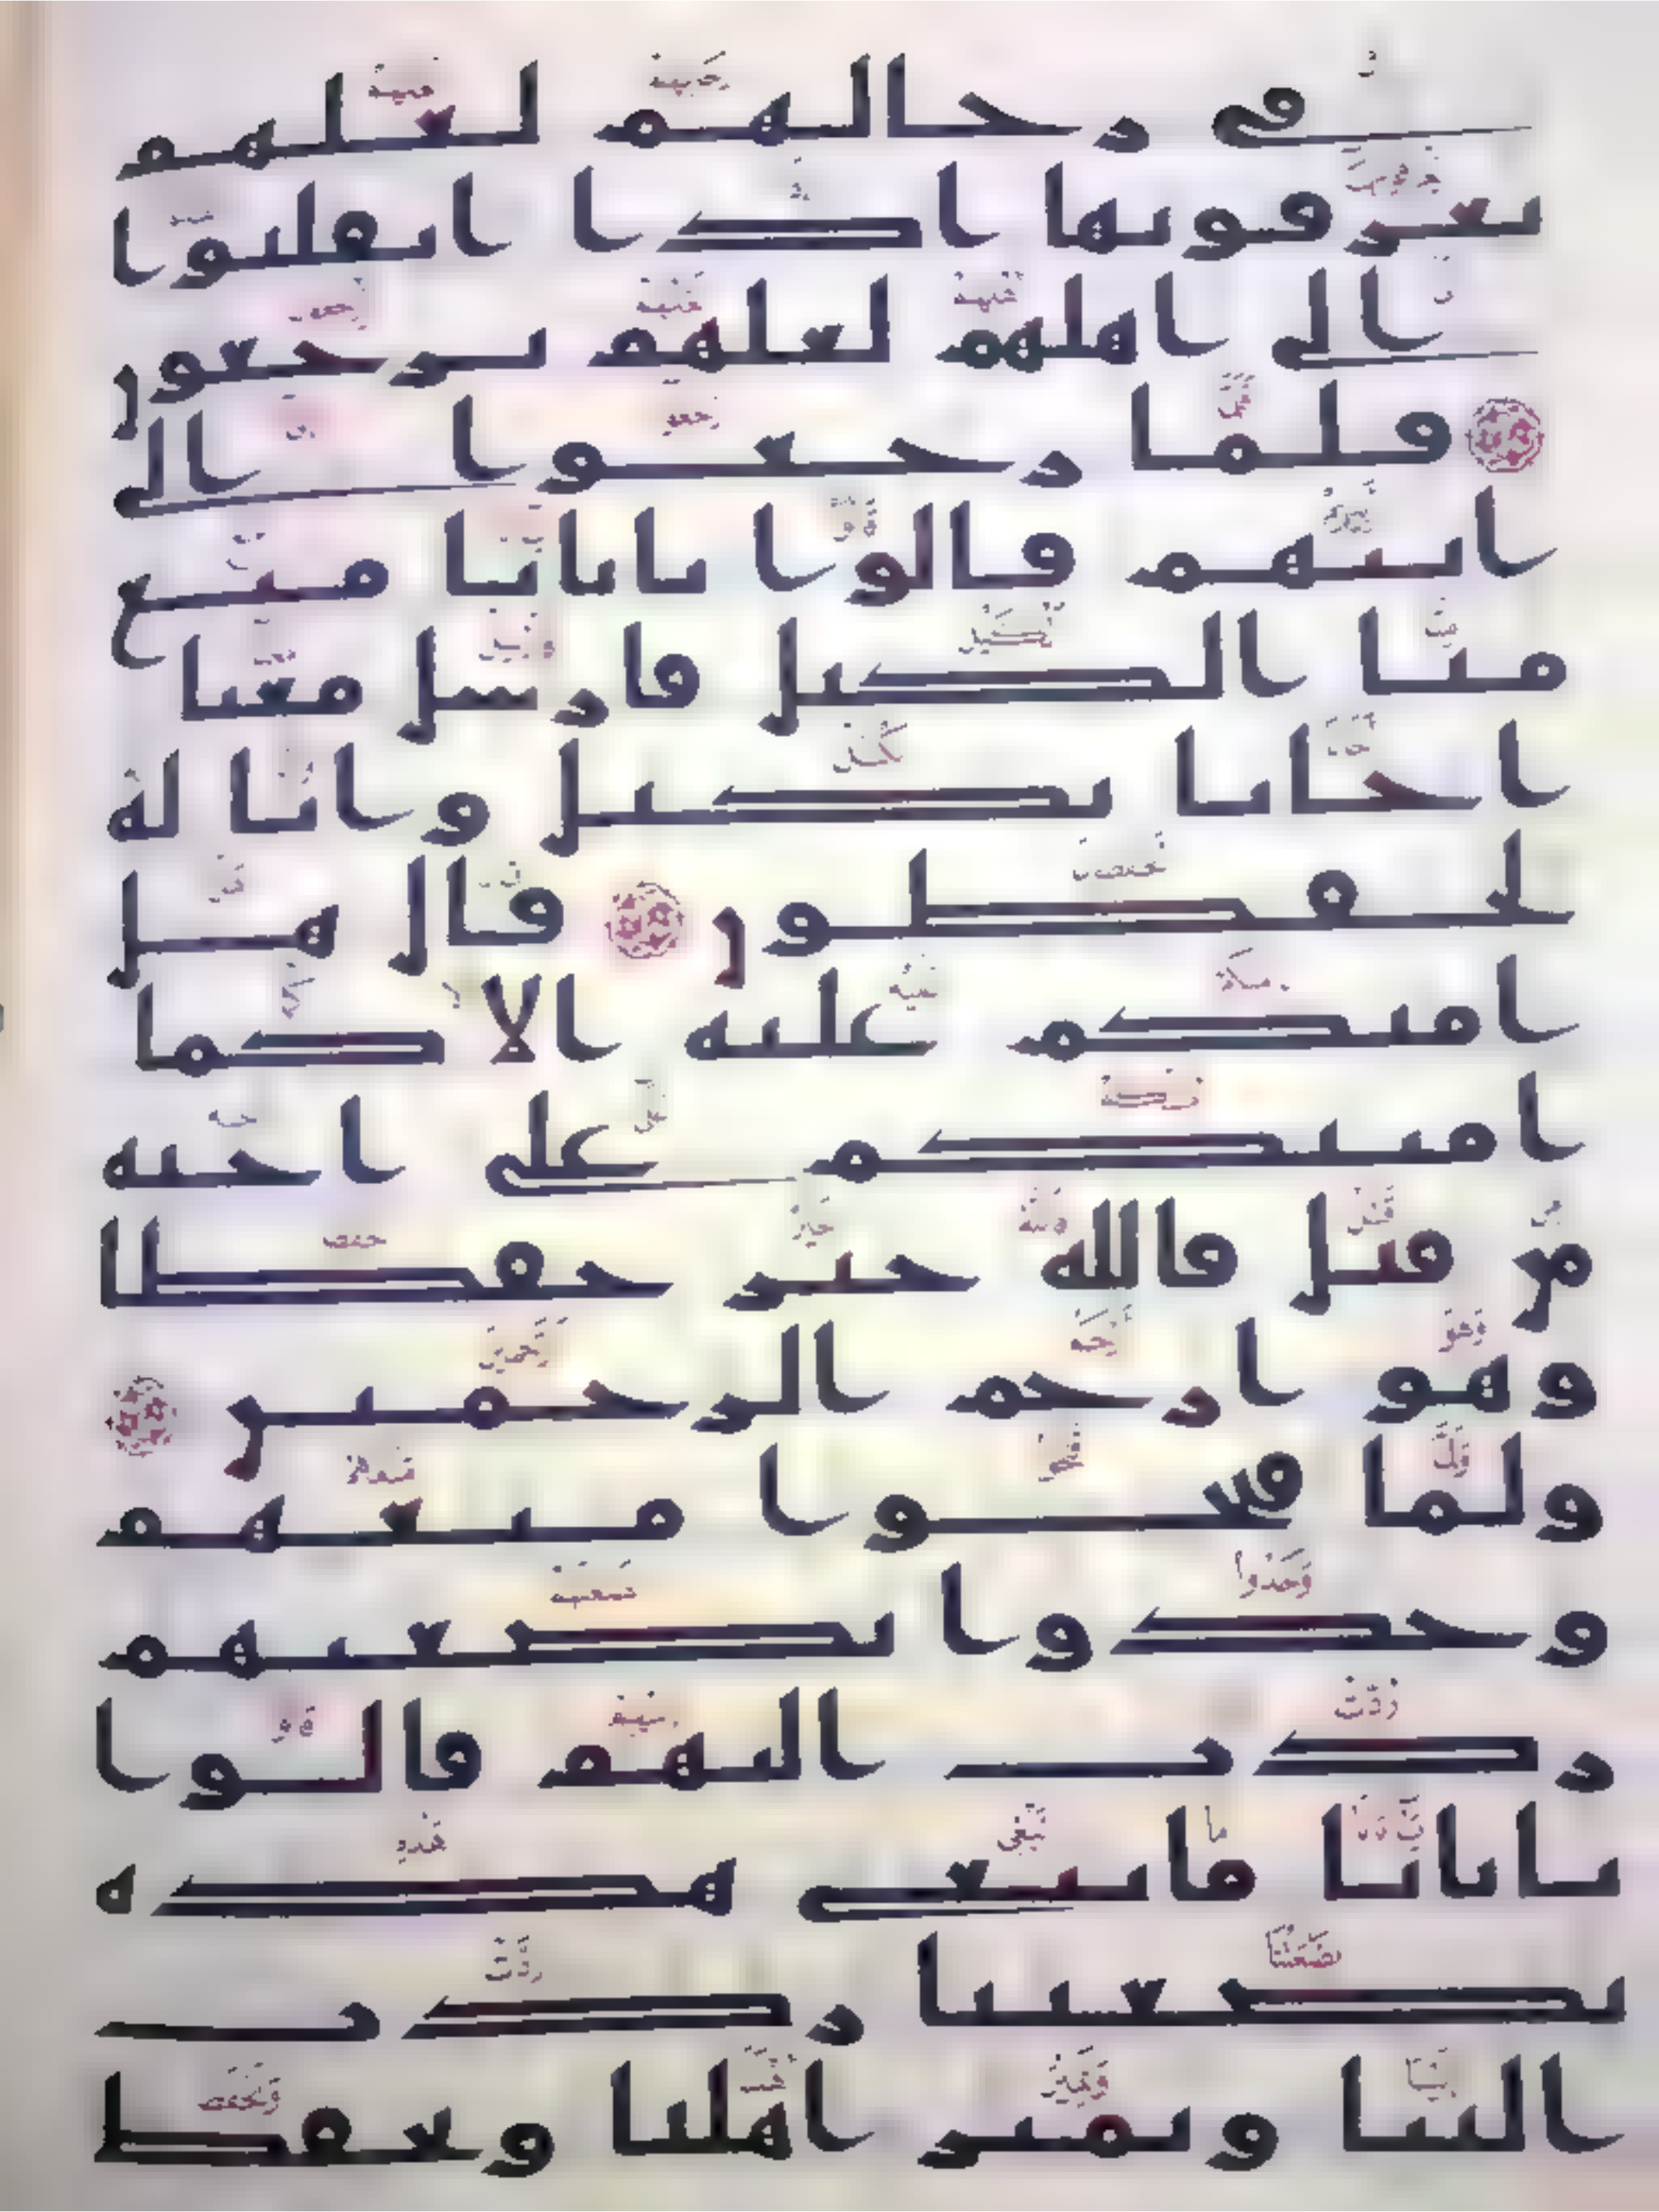 في رحالهم لعلهم
يعرفونها اذا انقلبوا
الى اهلهم لعلهم يرجعون
فلما رجعوا الى
ابيهم قالوا يابانا منع
منا الكيل فارسل معنا
اخانا نكتل وانا له
لحفظون قال هل
امنكم عليه الا كما
امنتكم على اخيه
من قبل فالله خير حفظا
وهو ارحم الرحمين
ولما فتحوا متعهم
وجدوا بضعتهم
ردت اليهم قالوا
يابانا ما نبغى هذه
بضعتنا ردت
الينا ونمير اهلنا ونحفظ